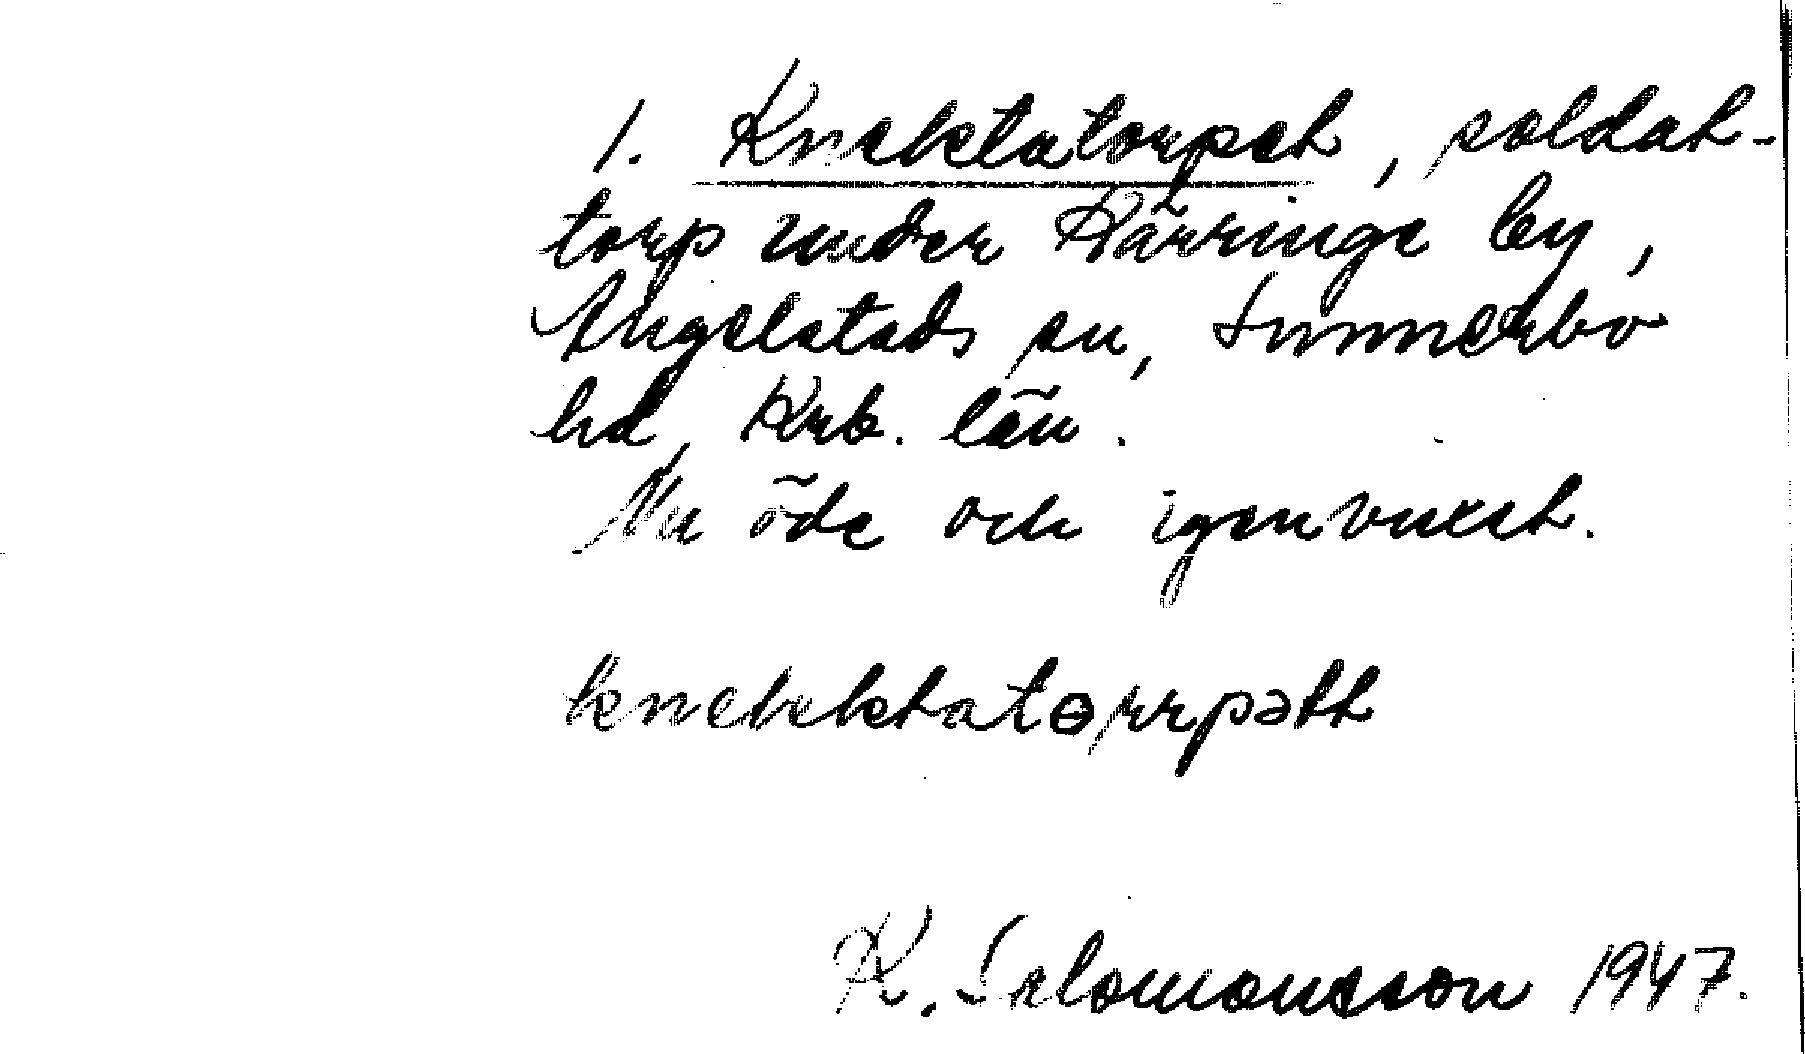 1. Knektatorpet, soldat-
torp under Härringe by,
Angelstads sn, Sunnerbo
hd, Krb. län.
Nu öde och igenvuxet.
knekktatɵrrpətt
K. Salomonsson 1947.